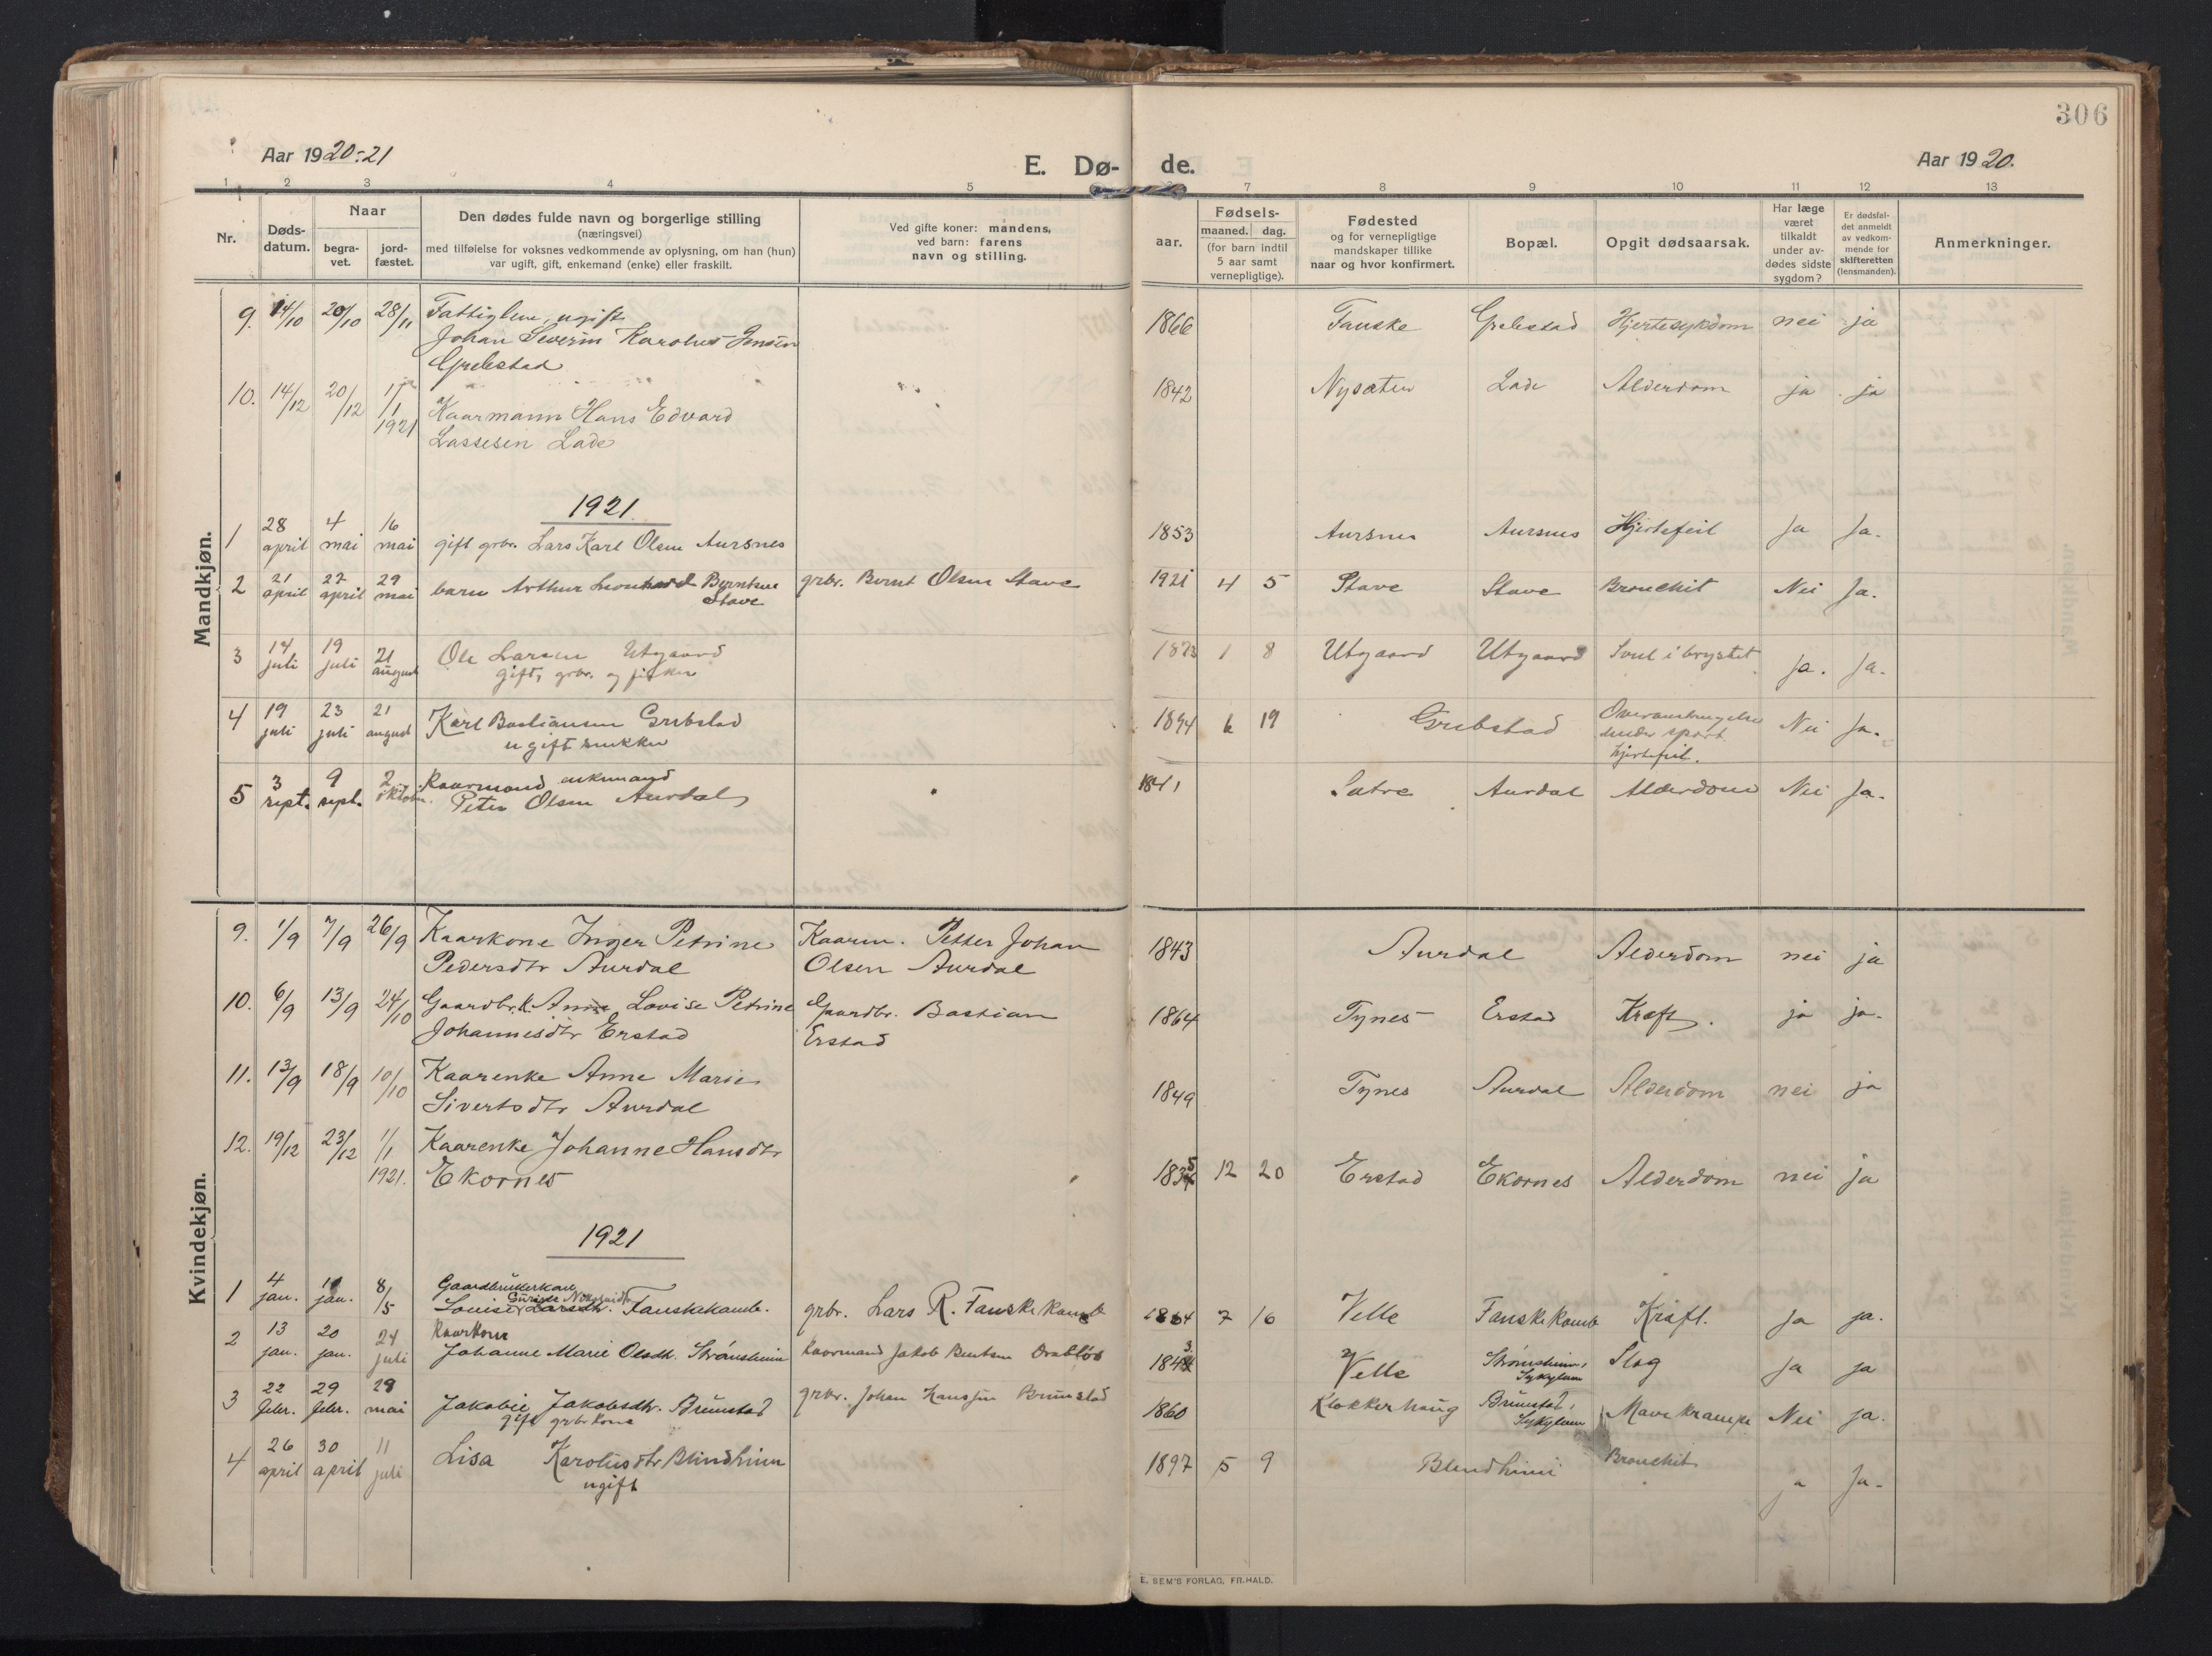 306
Aar 1920-21
E. Dø-
de.
Aar 1920.
1 2 3 4 5 7 8 9 10 11 12 13
Nr.
Døds-
datum.
Naar
begra-
vet.
jord-
fæstet.
Den dødes fulde navn og borgerlige stilling
(næringsvei)
med tilføielse for voksnes vedkommende av oplysning, om han (hun)
var ugift, gift, enkemand (enke) eller fraskilt.
Ved gifte koner: mandens,
ved barn: farens
navn og stilling.
aar.
Fødsels-
maaned. dag.
(for barn indtil
5 aar samt
vernepligtige).
Fødested
og for vernepligtige
mandskaper tillike
naar og hvor konfirmert.
Bopæl.
Opgit dødsaarsak.
Har læge
været
tilkaldt
under av-
dødes sidste
sygdom?
Er dødsfal-
det anmeldt
av vedkom-
mende for
skifteretten
(lensmanden).
Anmerkninger.
Mandkjøn.
9. 14/10 20/10 28/11 Fattiglem, ugift 1866 Fauske Grebstad Hjertesykdom nei ja
Johan Severin Karolus Jensen
Grebstad
10. 14/12 20/12 1/1 1921 Kaarmann Hans Edvard 1842 Nysæter Lade Alderdom ja ja
Lassesen Lade
1921
1 28 april 4 mai 16 mai gift grbr. Lars Karl Olsen Aursnes 1853 Aursnes Aursnes Hjertefeil Ja Ja.
2 21 april 27 april 29 mai barn Arthur Leonhard Berntsen grbr. Bernt Olsen Stave 1921 4 5 Stave Stave Bronchit Nei Ja.
Stave
3 14 juli 19 juli 21 august Ole Larsen Utgaard 1873 1 8 Utgaard Utgaard Svul i brystet Ja. Ja.
gift, grbr. og fisker
4 19 juli 23 juli 21 august Karl Bastiansen Grebstad 1894 6 19 Grebstad Overanstrengelse Nei Ja.
ugift snekker under sport
hjertefeil.
5 3 sept. 9 sept. 2 oktober. Kaarmand enkemand 1841 Sætre Aurdal Alderdom Nei Ja.
Peter Olsen Aurdal
Kvindekjøn.
9. 1/9 7/9 26/9 Kaarkone Inger Petrine Kaarm. Petter Johan 1843 Aurdal Alderdom nei ja
Pedersdtr Aurdal Olsen Aurdal
10. 6/9 13/9 24/10 Gaardbr.k. Anne Lovise Petrine Gaardbr. Bastian 1864 Tynes Erstad Kræft. ja ja.
Johannesdtr Erstad Erstad
11. 13/9 18/9 10/10 Kaarenke Anne Marie 1849 Tynes Aurdal Alderdom nei ja
Sivertsdtr Aurdal
12. 19/12 23/12 1/1 1921. Kaarenke Johanne Hansdtr 1835 12 20 Erstad Ekornes Alderdom nei ja
Ekornes
1921
1 4 jan. jan. 8/5 Gaardbrukerkone
Louise Larsdtr. Fauskekamb. grbr. Lars R. Fauskekamb 1864 7 16 Velle Fauskekamb Kræft. Ja ja.
2 13 jan. 20 jan. 24 juli Kaarkone
Johanne Marie Olsdtr. Strømsheim Kaarmand Jakob Bentsen Drabløs 1843 Velle Strømsheim, Sykylven Slag Ja ja
3 22 febr. 29 febr. 29 mai Jakobie Jakobsdtr. Brunstad grbr. Johan Hanssen Brunstad 1860 Klokkerhaug Brunstad, Sykylven Mavekrampe Nei ja.
gift grbr kone
4 26 april 30 april 11 juli Lisa Karolusdtr Blindheim 1897 5 9 Blindheim Bronchit ja Ja.
ugift
E. SEM'S FORLAG, FR.HALD.